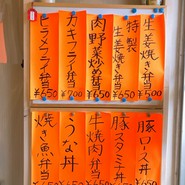 生姜焼き弁当
¥500
特製
生姜焼き弁当
¥650
肉野菜炒め弁当
¥650
カキフライ弁当
¥700
ヒラメフライ弁当
¥650
豚ロース丼
豚スタミナ丼
牛焼肉弁当
うな丼
焼き魚弁当